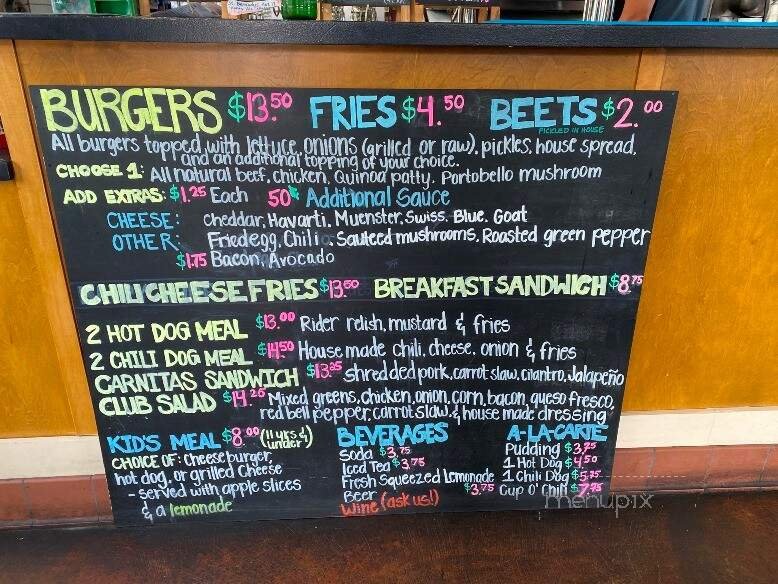 BURGERS $13.50 FRIES $4.50 BEETS $2.00
PICKLED IN HOUSE
All burgers topped with lettuce, onions (grilled or raw), pickles, house spread,
and an additional topping of your choice.
CHOOSE 1: All natural beef, chicken, Quinoa patty, Portobello mushroom
ADD EXTRAS: $1.25 Each 50¢ Additional Sauce
CHEESE: cheddar, Havarti, Muenster, Swiss, Blue, Goat
OTHER: Fried egg, Chili, Sauteed mushrooms, Roasted green pepper
$1.75 Bacon, Avocado
CHILI CHEESE FRIES $13.50 BREAKFAST SANDWICH $8.75
2 HOT DOG MEAL $13.00 Rider relish, mustard & fries
2 CHILI DOG MEAL $14.50 House made chili, cheese, onion & fries
CARNITAS SANDWICH $13.25 shredded pork, carrot slaw, cilantro, Jalapeño
CLUB SALAD $14.25 Mixed greens, chicken, onion, corn, bacon, queso fresco,
red bell pepper, carrot slaw, & house made dressing
KID'S MEAL $8.00 (11 yrs & under)
CHOICE OF: cheeseburger,
hot dog, or grilled cheese
- served with apple slices
& a lemonade
BEVERAGES
Soda $3.75
Iced Tea $3.75
Fresh Squeezed Lemonade
$3.75
Beer
Wine (ask us!)
A-LA-CARTE
Pudding $3.75
1 Hot Dog $4.50
1 Chili Dog $5.75
Cup O' Chili $7.75
menupix